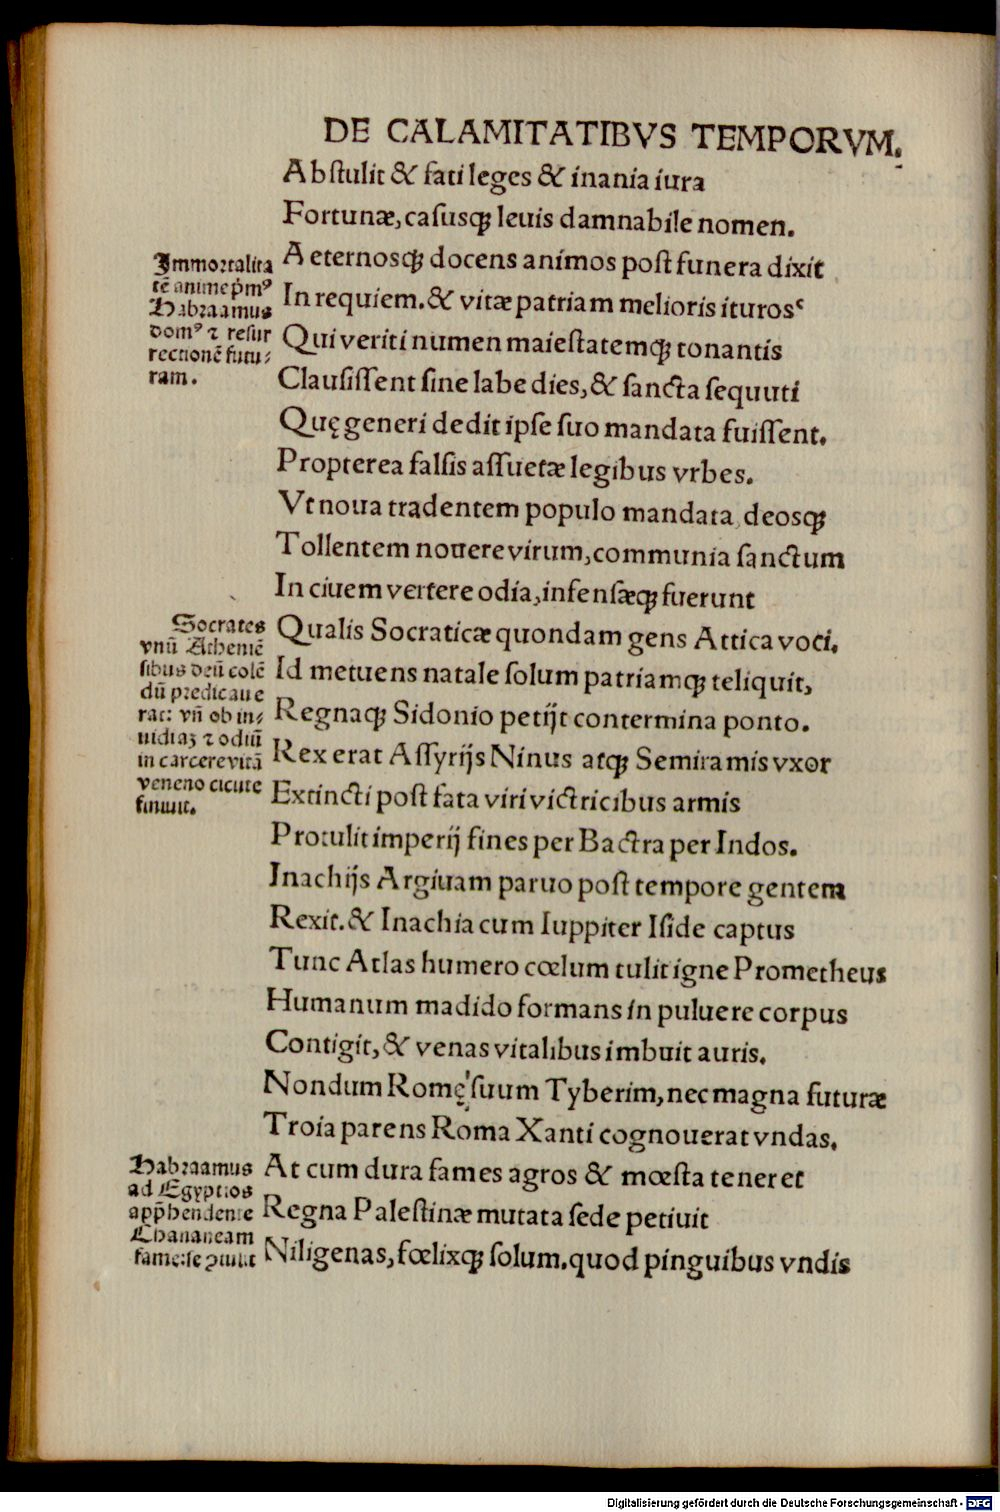 DE CALAMITATIBVS TEMPORVM.
Abstulit & fati leges & inania iura
Fortunæ, casusqꝫ leuis damnabile nomen.
Aeternosqꝫ docens animos post funera dixit
In requiem. & vitæ patriam melioris ituros
Qui veriti numen maiestatemqꝫ tonantis
Clausissent sine labe dies, & sancta sequuti
Quę generi dedit ipse suo mandata fuissent.
Propterea falsis assuetæ legibus vrbes.
Vt noua tradentem populo mandata, deosqꝫ
Tollentem nouere virum, communia sanctum
In ciuem vertere odia, infensæqꝫ fuerunt
Qualis Socraticæ quondam gens Attica voci.
Id metuens natale solum patriamqꝫ teliquit,
Regnaqꝫ Sidonio petijt contermina ponto.
Rex erat Assyrijs Ninus atqꝫ Semiramis vxor
Extincti post fata viri victricibus armis
Protulit imperij fines per Bactra per Indos.
Inachijs Argiuam paruo post tempore gentem
Rexit. & Inachia cum Iuppiter Iside captus
Tunc Atlas humero cœlum tulit igne Prometheus
Humanum madido formans in puluere corpus
Contigit, & venas vitalibus imbuit auris.
Nondum Romę suum Tyberim, nec magna futuræ
Troia parens Roma Xanti cognouerat vndas.
At cum dura fames agros & mœsta teneret
Regna Palestinæ mutata sede petiuit
Niligenas, fœlixqꝫ solum. quod pinguibus vndis
Immortalita
tē anime p̄mꝰ
Habraamus
domꝰ ⁊ resur
rectionē futu⸗
ram.
Socrates
vnū Atheniē
sibus deū colē
dū predicaue
rat: vñ ob in⸗
uidiaꝫ ⁊ odiū
in carcere vitā
veneno cicute
finiuit.
Habraamus
ad Egyptios
app̄hendente
Chananeam
fame: se ꝯtulit
Digitalisierung gefördert durch die Deutsche Forschungsgemeinschaft - DFG